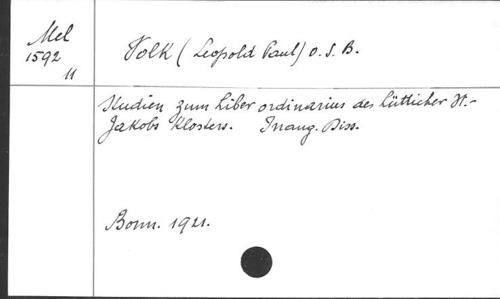 Mel
1592
11
Volk (Leopold Paul) O. S. B.
Studien zum Liber ordinarius des Lütticher St.-
Jakobs Klosters. Inaug. Diss.
Bonn. 1921.